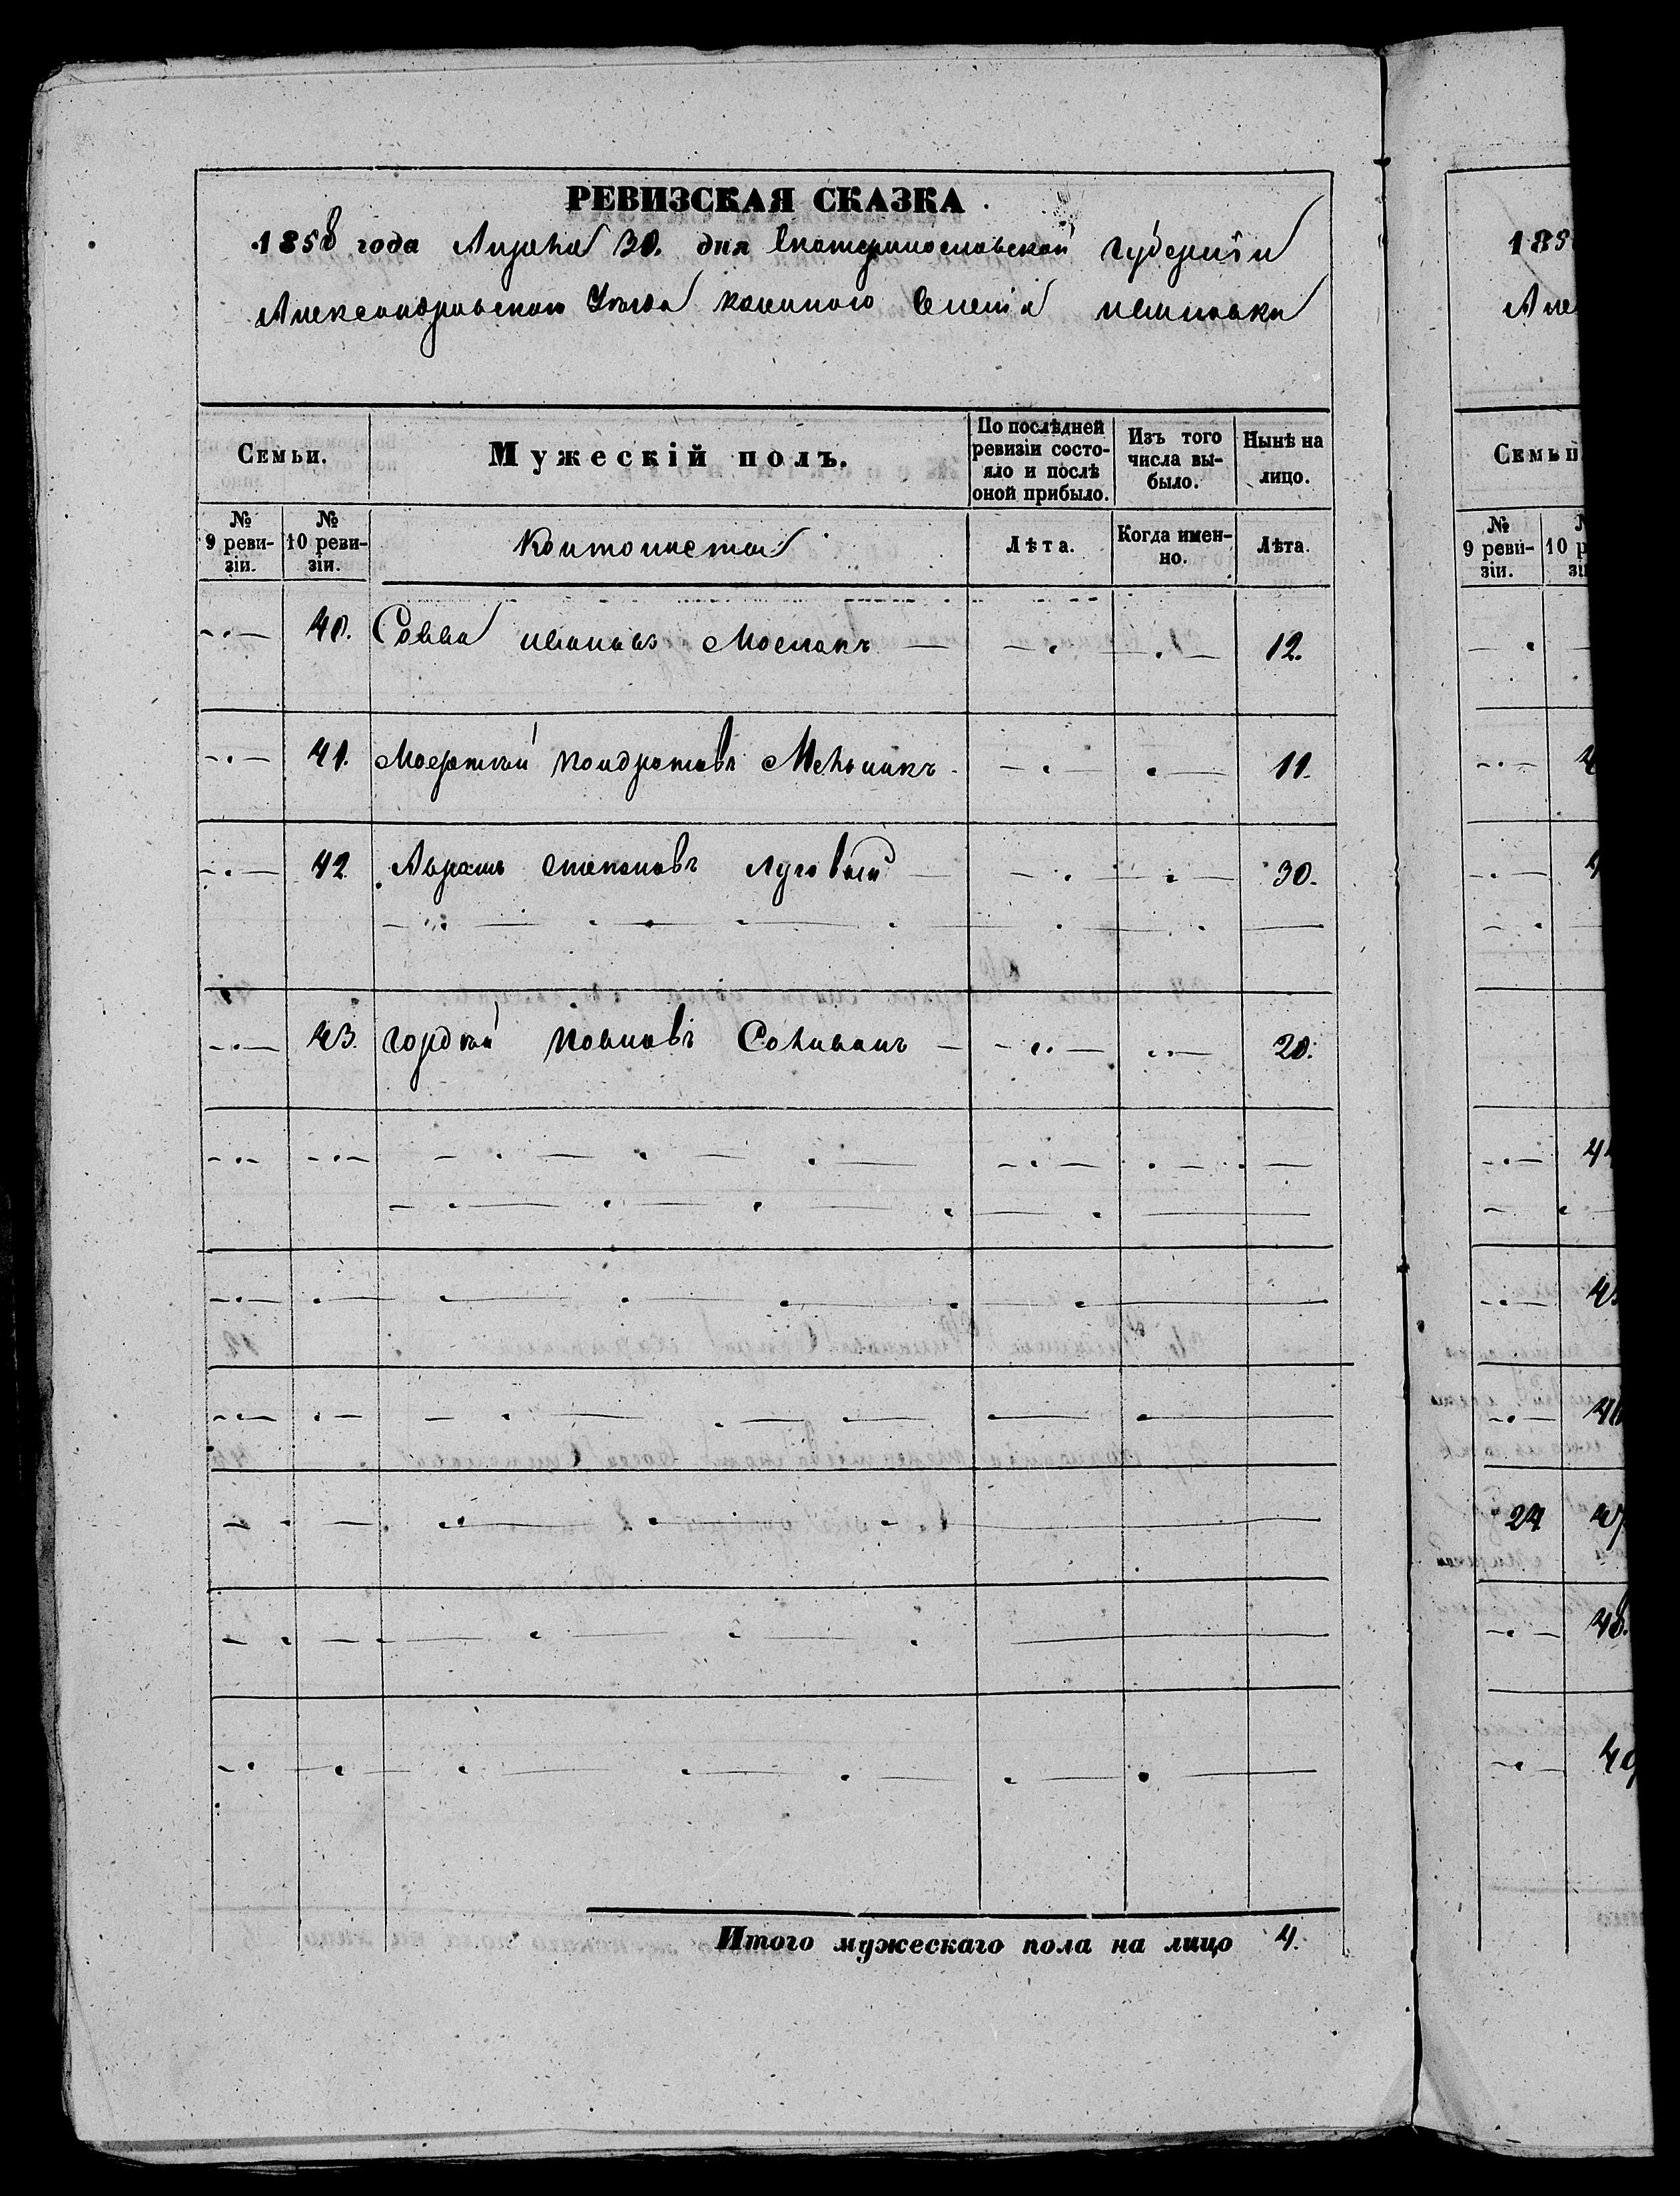 РЕВИЗСКАЯ СКАЗКА
1858 года Апреля 30. дня Екатеринославской Губернии
Александровского Уезда казенного Селения
Семьи. Мужескій полъ. По послѣдней ревизіи состояло и послѣ оной прибыло. Изъ того числа выбыло. Нынѣ на лицо.
№ 9 ревизіи. № 10 ревизіи. Кантонисты Лѣта. Когда именно. Лѣта.
40. Савва Ивановъ 12.
41. Кондратовъ Мельникъ 11.
42 Абрамъ Степановъ Луговый 30.
43. Гордѣй Павловъ 20.
Итого мужескаго пола на лицо 4.
185
Але
Семьи
№ 9 ревизіи.
24
48.